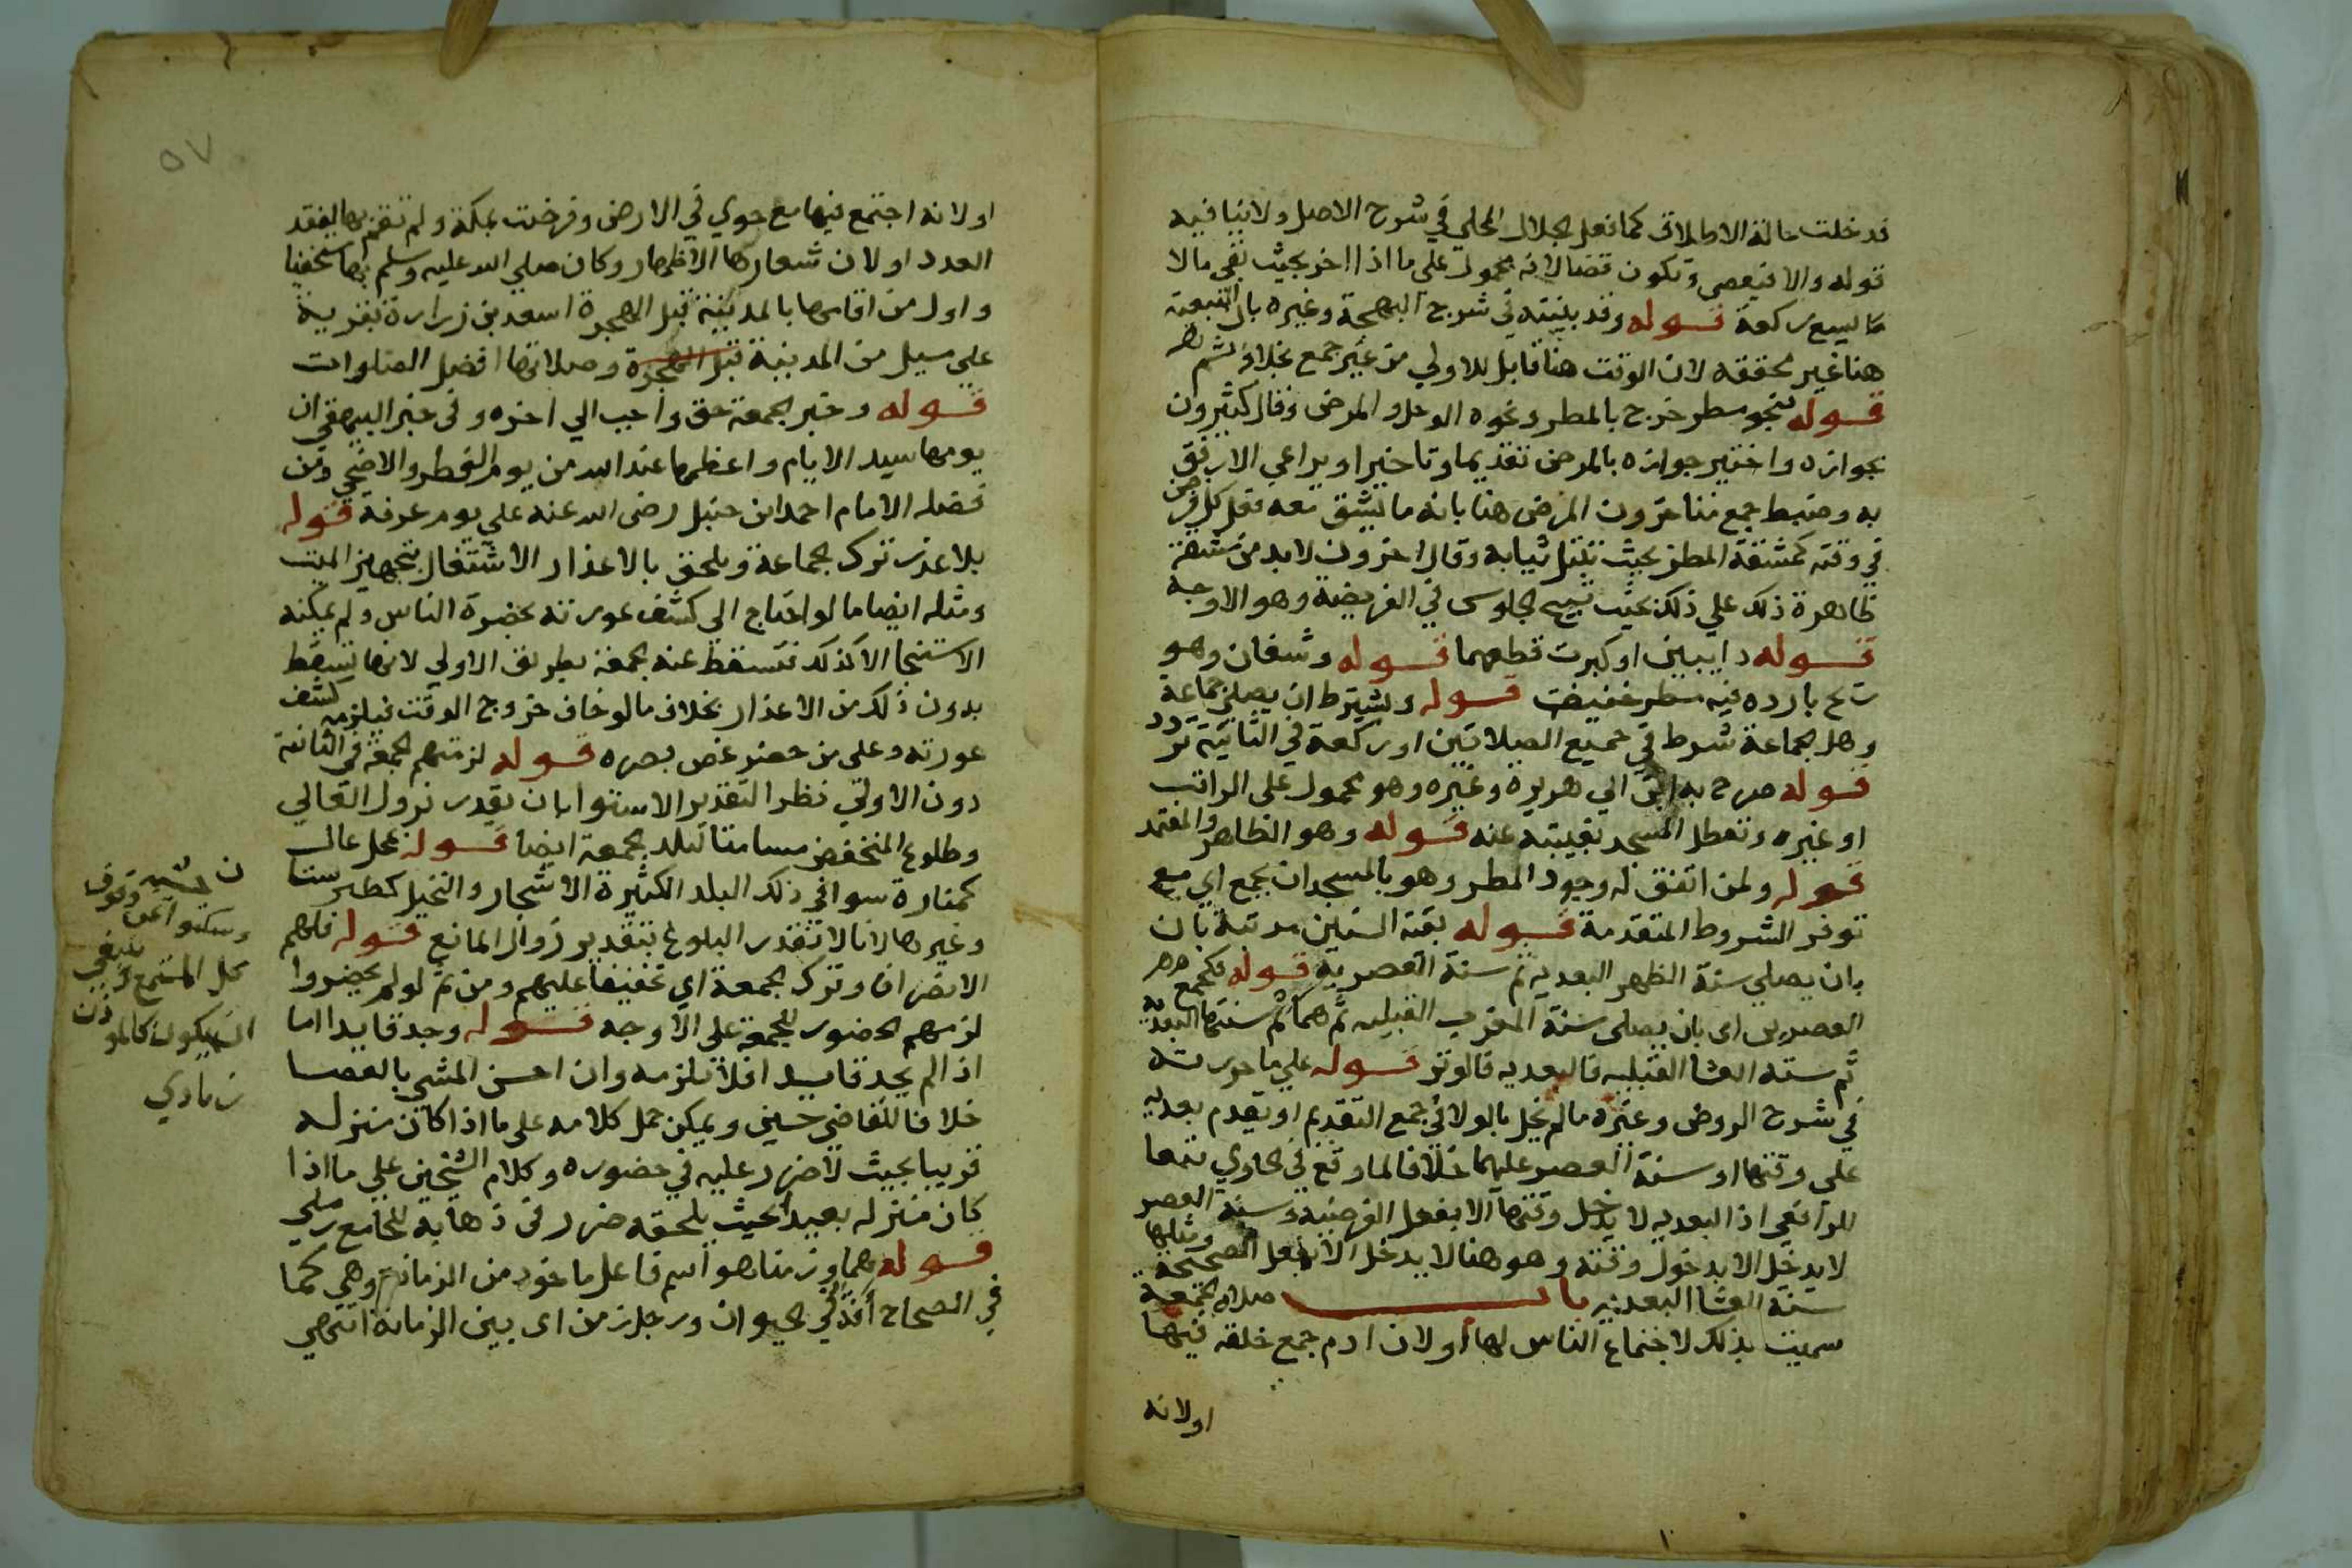 قد خلت حالة الاطلاق كما فعل الجلال المحلي في شرح الاصل ولا ينافيه
قوله والا فيعصي وتكون قضا لانه محمول على ما اذا اخر بحيث بقي ما لا
يسع ركعة قوله وقد بينته في شرح البهجة وغيره بان التبعية
هنا غير محققه لان الوقت هنا قابل للاولي من غير جمع بخلافه ثم
قوله بنحو مطر خرج بالمطر ونحوه الوحل والمرض وقال كثيرون
بجوازه واختير جوازه بالمرض تقديما وتاخيرا ويراعي الارفق
به وضبط جمع متاخرون المرض هنا بانه ما يشق معه فعل كل فرض
في وقته كمشقة المطر بحيث تبتل ثيابه وقال اخرون لا بد من مشقة
ظاهرة زيادة ذلك علي ذلك بحيث تبيح الجلوس في الفريضة وهو الاوجه
قوله دايبين او كبرت قطعهما قوله وشفان وهو
ريح بارده فيه مطر خفيف قوله ويشترط ان يصلي جماعة
وهل الجماعة شرط في جميع الصلاتين او ركعة في الثانية تردد
قوله صرح به ابن ابي هريرة وغيره وهو محمول على الراتب
او غيره وتعطل المسجد بغيبته عنه قوله وهو الظاهر والمعتمد
قوله ولمن اتفق له وجود المطر وهو بالمسجد ان يجمع اي مع
توفر الشروط المتقدمة قوله بقية السنين مرتبة بان
بان يصلي سنة الظهر البعديه ثم سنة العصرية قوله فكجمع
العصرين اي بان يصلي سنة المغرب القبليه ثم هما ثم سنتها البعدية
ثم سنة العشا القبليه فالبعديه فالوتر قوله علي ما حررته
في شرح الروض وغيره ما لم يخل بالولا في جمع التقديم او يقدم بعديه
على وقتها او سنة العصر عليهما خلافا لما وقع في الحاوي تبعا
للرافعي اذ البعديه لا يدخل وقتها الا بفعل الفرضية وسنة العصر
لا يدخل الا بدخول وقته وهو هنا لا يدخل الا بفعل الصحيحة ومثلها
سنة العشا البعديه باب صلاة الجمعة
سميت بذلك لاجتماع الناس لها او لان ادم جمع خلقه فيها
او لانه
٥٧
او لانه اجتمع فيها مع حوي في الارض وفرضت بمكة ولم تقم بها لفقد
العدد او لان شعارها الاظهار وكان صلي الله عليه وسلم بها مستخفيا
واول من اقامها بالمدينة قبل الهجرة اسعد بن زرارة بقرية
علي ميل من المدينة قبل الهجرة وصلاتها افضل الصلوات
قوله وخبر الجمعة حق واجب الي اخره وفي خبر البيهقي ان
يومها سيد الايام واعظمها عند الله من يوم الفطر والاضحي ومن
فضله الامام احمد ابن حنبل رضي الله عنه علي يوم عرفة قوله
بلا عذر ترك الجماعة ويلحق بالاعذار الاشتغال بتجهيز الميت
ومثله ايضا ما لو احتاج الي كشف عورته بحضرة الناس ولم يمكنه
الاستنجا الا كذلك فتسقط عنه الجمعة بطريق الاولي لانها تسقط
بدون ذلك من الاعذار بخلاف ما لو خاف خروج الوقت فيلزمه كشف
عورته وعلى من حضر غض بصره قوله لزمتهم الجمعة في الثانية
دون الاولي نظر التقدير الاستوا بان يقدر نزول العالي
وطلوع المنخفض مسامتا لبلد الجمعة ايضا قوله بمحل عال
كمنارة سوا في ذلك البلد الكثيرة الاشجار والنخيل كطبرستان
وغيرها لانا لا نقدر البلوغ بتقدير زوال المانع قوله فلهم
الانصراف وترك الجمعة اي تخفيفا عليهم ومن ثم لو لم يحضروا
لزمهم الحضور للجمعة على الاوجه قوله وجد قايدا اما
اذا لم يجد قايدا فلا تلزمه وان احسن المشي بالعصا
خلافا للقاضي حسين ويمكن حمل كلامه على ما اذا كان منزله
قريبا بحيث لا ضرر عليه في حضوره وكلام الشيخين علي ما اذا
كان منزله بعيدا بحيث يلحقه ضرر في ذهابه للجامع رملي
قوله هما وزمنا هو اسم فاعل ماخوذ من الزمانة وهي كما
في الصحاح افة في الحيوان ورجل زمن اي بين الزمانة انتهي
محل المستمع
ان يكون كالموذن
زيادي